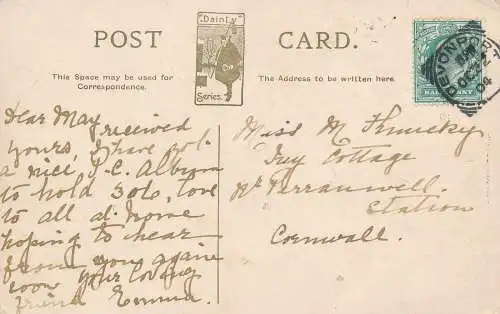 POST CARD.
"Dainty"
Series.
This Space may be used for
Correspondence.
The Address to be written here.
DEVONPORT
OC 2
04
HALFPENNY
Dear May
received
yours, I have got
a nice P.C. Album
to hold 300, love
to all at home
hoping to hear
from you again
soon your loving
friend Emma.
Miss M
Ivy Cottage
Nr Perranwell
Station
Cornwall.